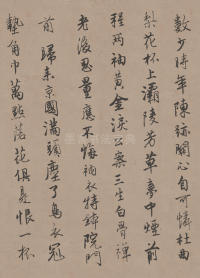 數少時年陳跡關心自可憐杜曲
梨花杯上灞陵芳草夢中煙前
程兩袖黃金淚公案三生白骨禪
老後思量應不悔衲衣持鉢院門
前歸來京國滿頭塵了鳥衣冠
墊角巾萬點落花俱是恨一杯